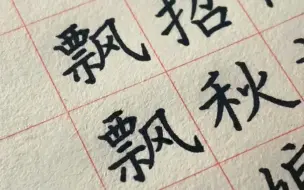 飘招
飘秋